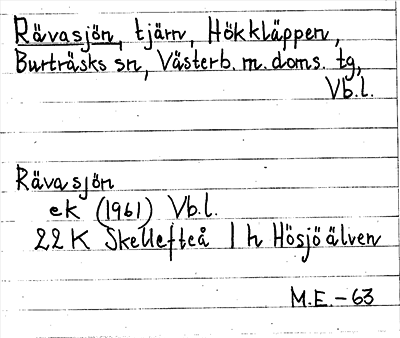 Rävasjön, tjärn, Hökkläppen,
Burträsks sn, Västerb. m. doms. tg,
Vb.l.
Rävasjön
ek (1961) Vb.l.
22K Skellefteå 1h Hösjöälven
M.E. - 63